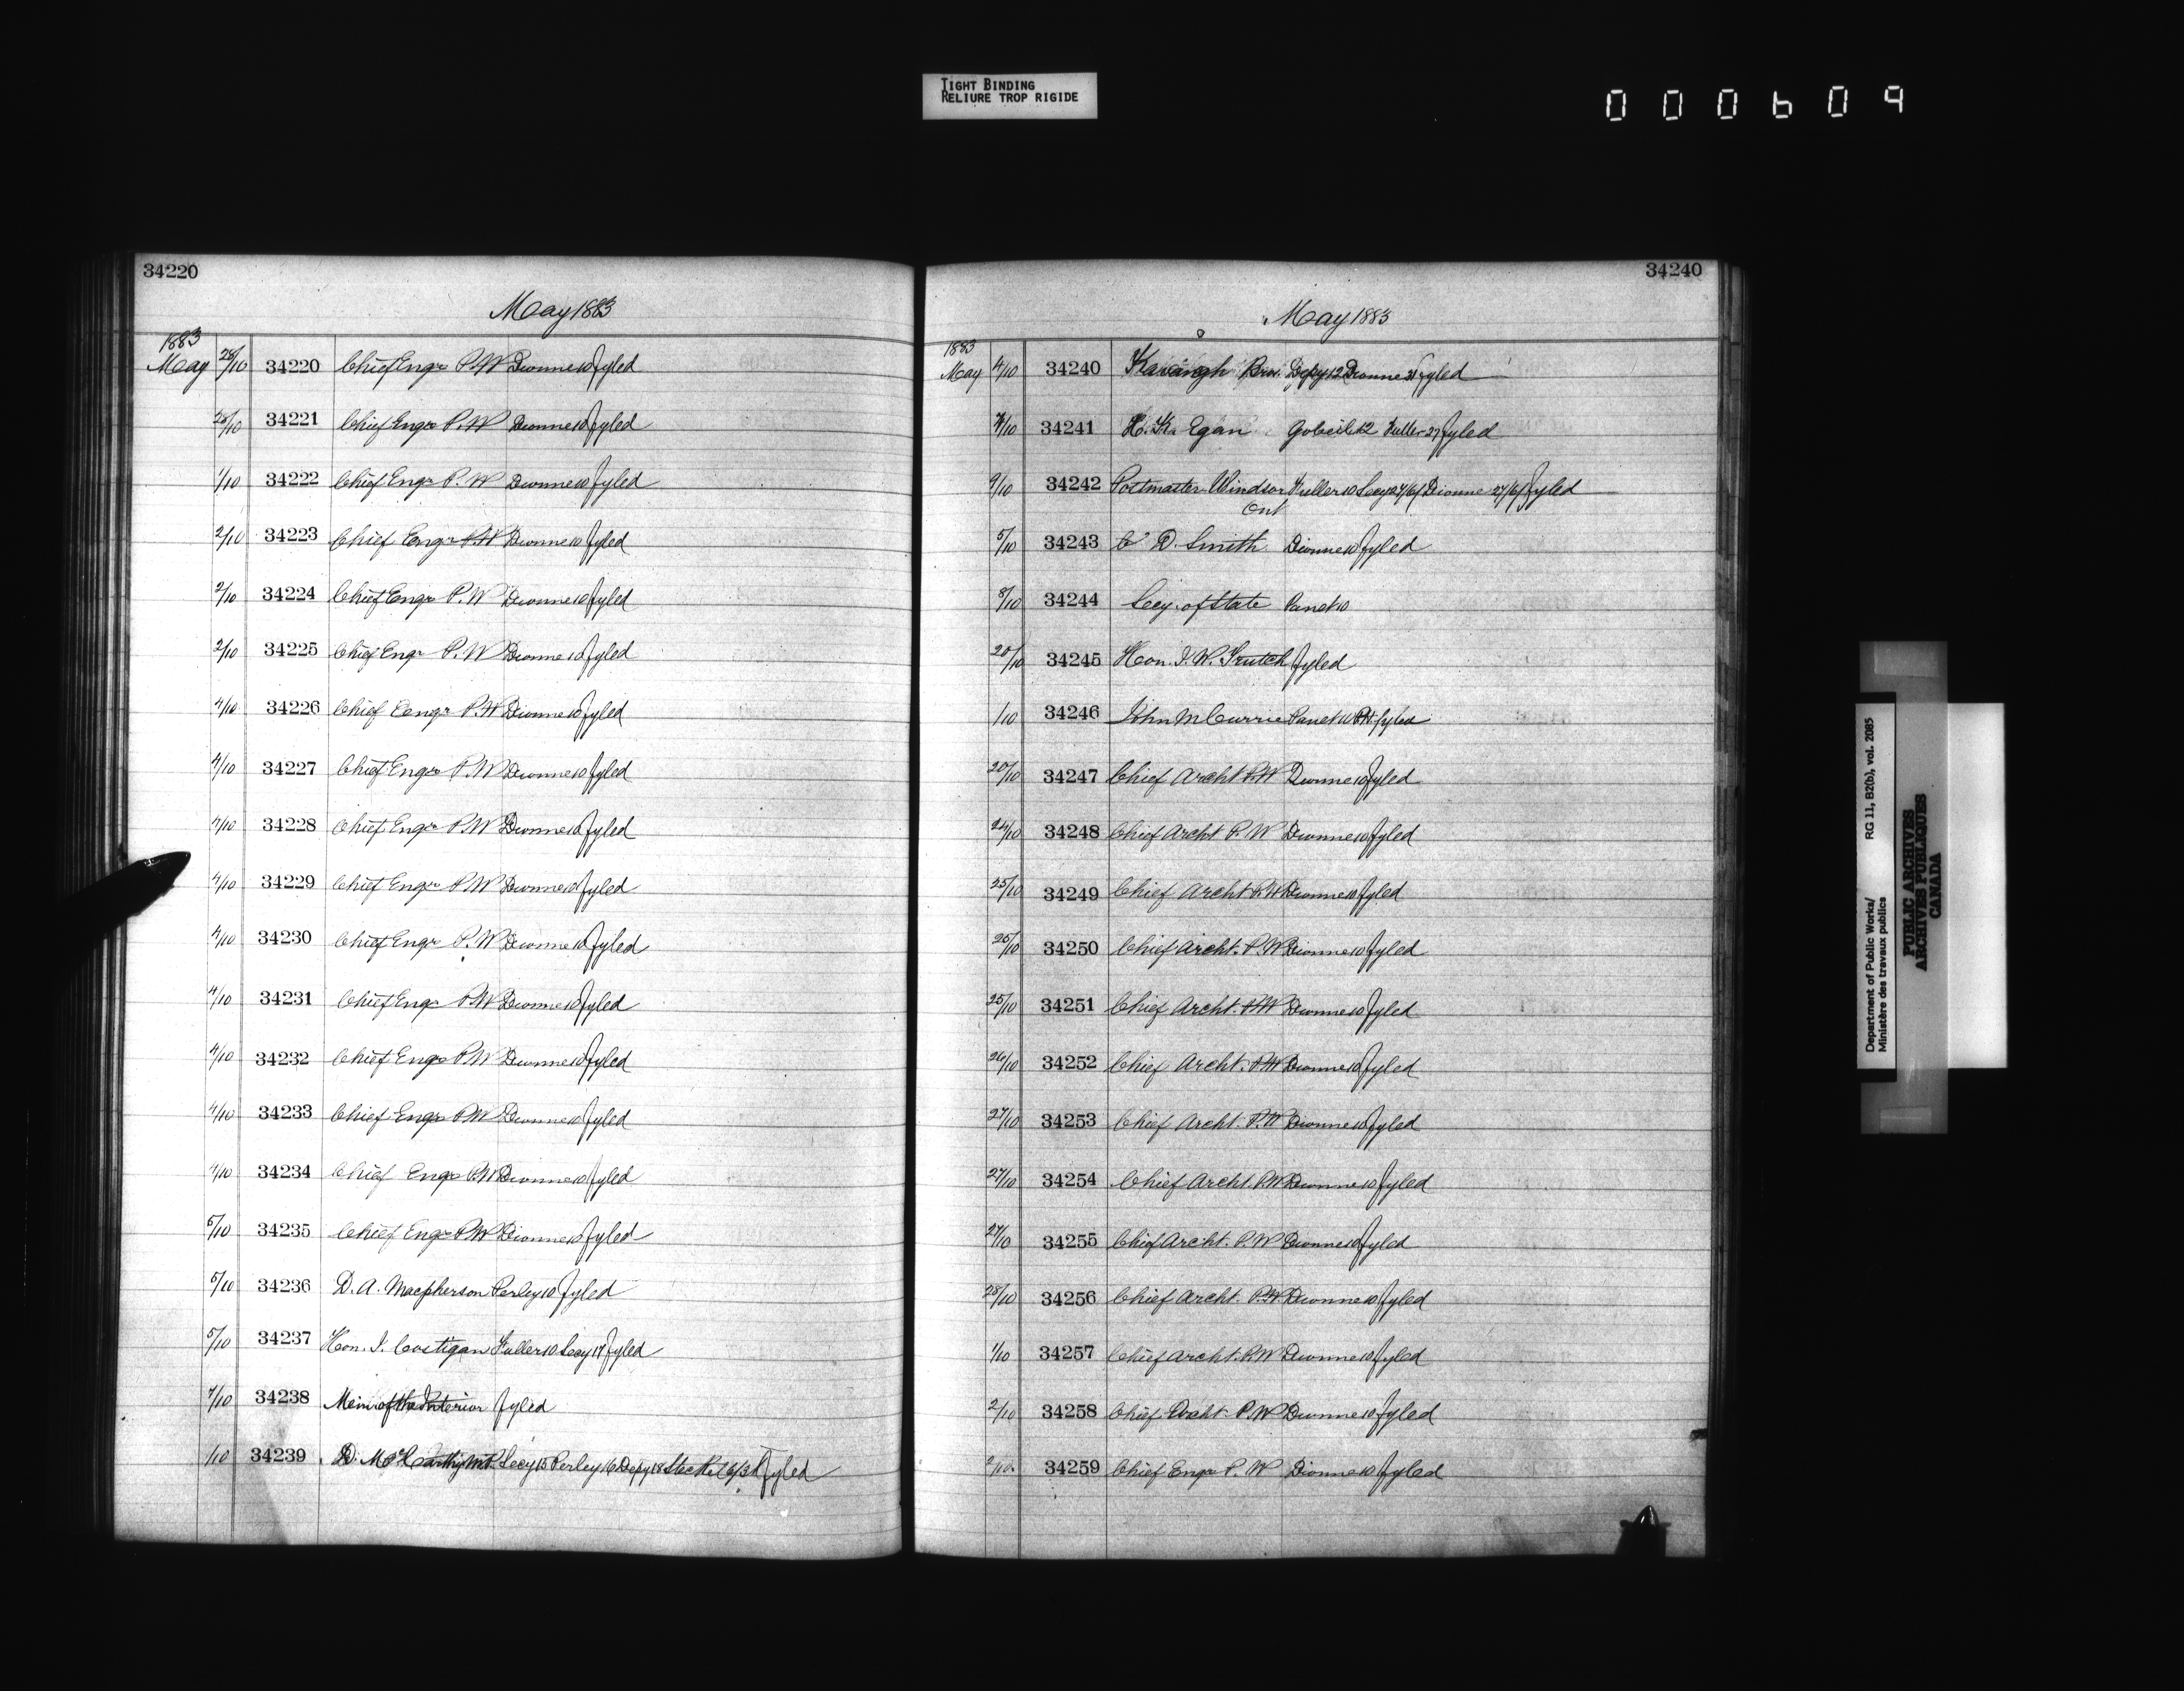 TIGHT BINDING
RELIURE TROP RIGIDE
000609
34220
May 1883
1883
May 28/10 34220 Chief Engr P.W Dionne 10 fyled
28/10 34221 Chief Engr P.W Dionne 10 fyled
1/10 34222 Chief Engr P.W Dionne 10 fyled
2/10 34223 Chief Engr P.W Dionne 10 fyled
2/10 34224 Chief Engr P.W Dionne 10 fyled
2/10 34225 Chief Engr P.W Dionne 10 fyled
4/10 34226 Chief Engr P.W Dionne 10 fyled
4/10 34227 Chief Engr P.W Dionne 10 fyled
4/10 34228 Chief Engr P.W Dionne 10 fyled
4/10 34229 Chief Engr P.W Dionne 10 fyled
4/10 34230 Chief Engr P.W Dionne 10 fyled
4/10 34231 Chief Engr P.W Dionne 10 fyled
4/10 34232 Chief Engr P.W Dionne 10 fyled
4/10 34233 Chief Engr P.W Dionne 10 fyled
4/10 34234 Chief Engr P.W Dionne 10 fyled
5/10 34235 Chief Engr P.W Dionne 10 fyled
5/10 34236 D. A. Macpherson Perley 10 fyled
5/10 34237 Hon. J. Costigan Fuller 10 Secy 17 fyled
7/10 34238 of the Interior fyled
1/10 34239 D. McCarthy M.P. Secy 15 Perley 16 Depy 18 Steckel 6/3 fyled
34240
May 1883
1883
May 4/10 34240 Kavanagh Bros. Depy 12 Dionne 31 fyled
7/10 34241 H. K. Egan Gobeil 12 Fuller 27 fyled
9/10 34242 Postmaster Windsor Fuller 10 Secy 27/6/ Dionne 27/6/ fyled
Ont
5/10 34243 C D. Smith Dionne 10 fyled
8/10 34244 Secy. of State Panet 10
20/10 34245 Hon. J. W. Trutch fyled
1/10 34246 John McCurrie Panet 10 fyled
20/10 34247 Chief Archt P.W Dionne 10 fyled
24/10 34248 Chief Archt P.W Dionne 10 fyled
25/10 34249 Chief Archt P.W Dionne 10 fyled
25/10 34250 Chief Archt. P.W Dionne 10 fyled
25/10 34251 Chief Archt. P.W Dionne 10 fyled
26/10 34252 Chief Archt. P.W Dionne 10 fyled
27/10 34253 Chief Archt. P.W Dionne 10 fyled
27/10 34254 Chief Archt. P.W Dionne 10 fyled
27/10 34255 Chief Archt. P.W Dionne 10 fyled
28/10 34256 Chief Archt. P.W Dionne 10 fyled
1/10 34257 Chief Archt. P.W Dionne 10 fyled
2/10 34258 Chief Archt. P.W Dionne 10 fyled
2/10 34259 Chief Engr P.W Dionne 10 fyled
Department of Public Works/ RG 11, B2(b), vol. 2085
Ministère des travaux publics
PUBLIC ARCHIVES
ARCHIVES PUBLIQUES
CANADA